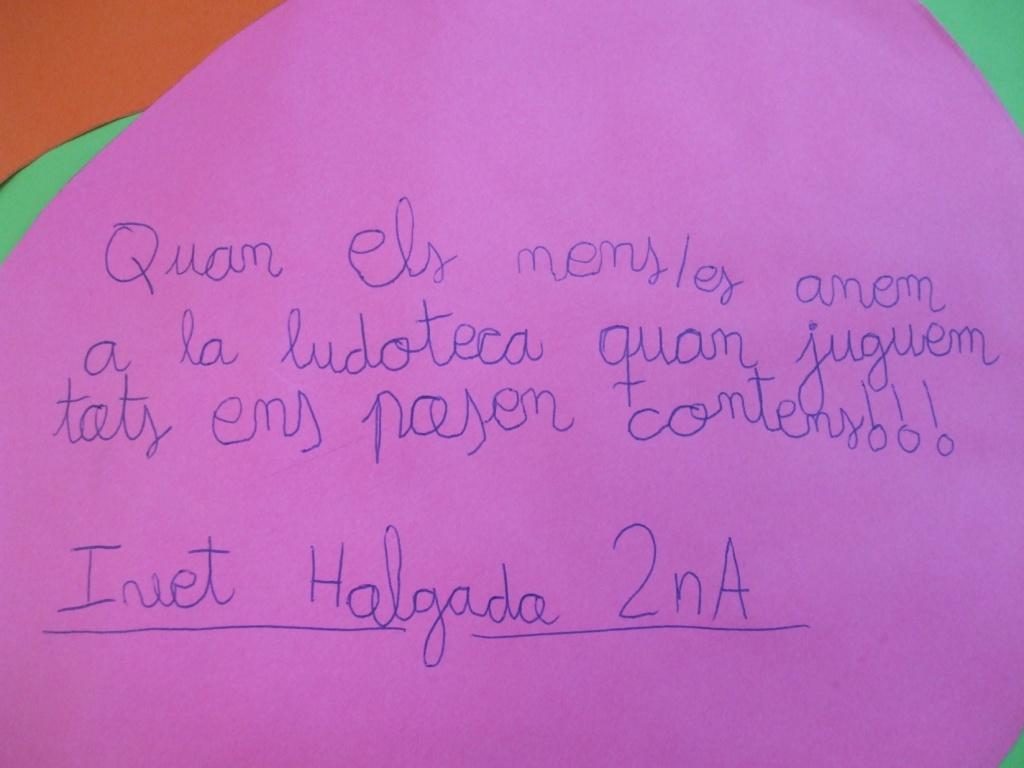 Quan els nens/es anem
a la ludoteca quan juguem
tots ens posen contens!!!
Ivet Holgado 2nA